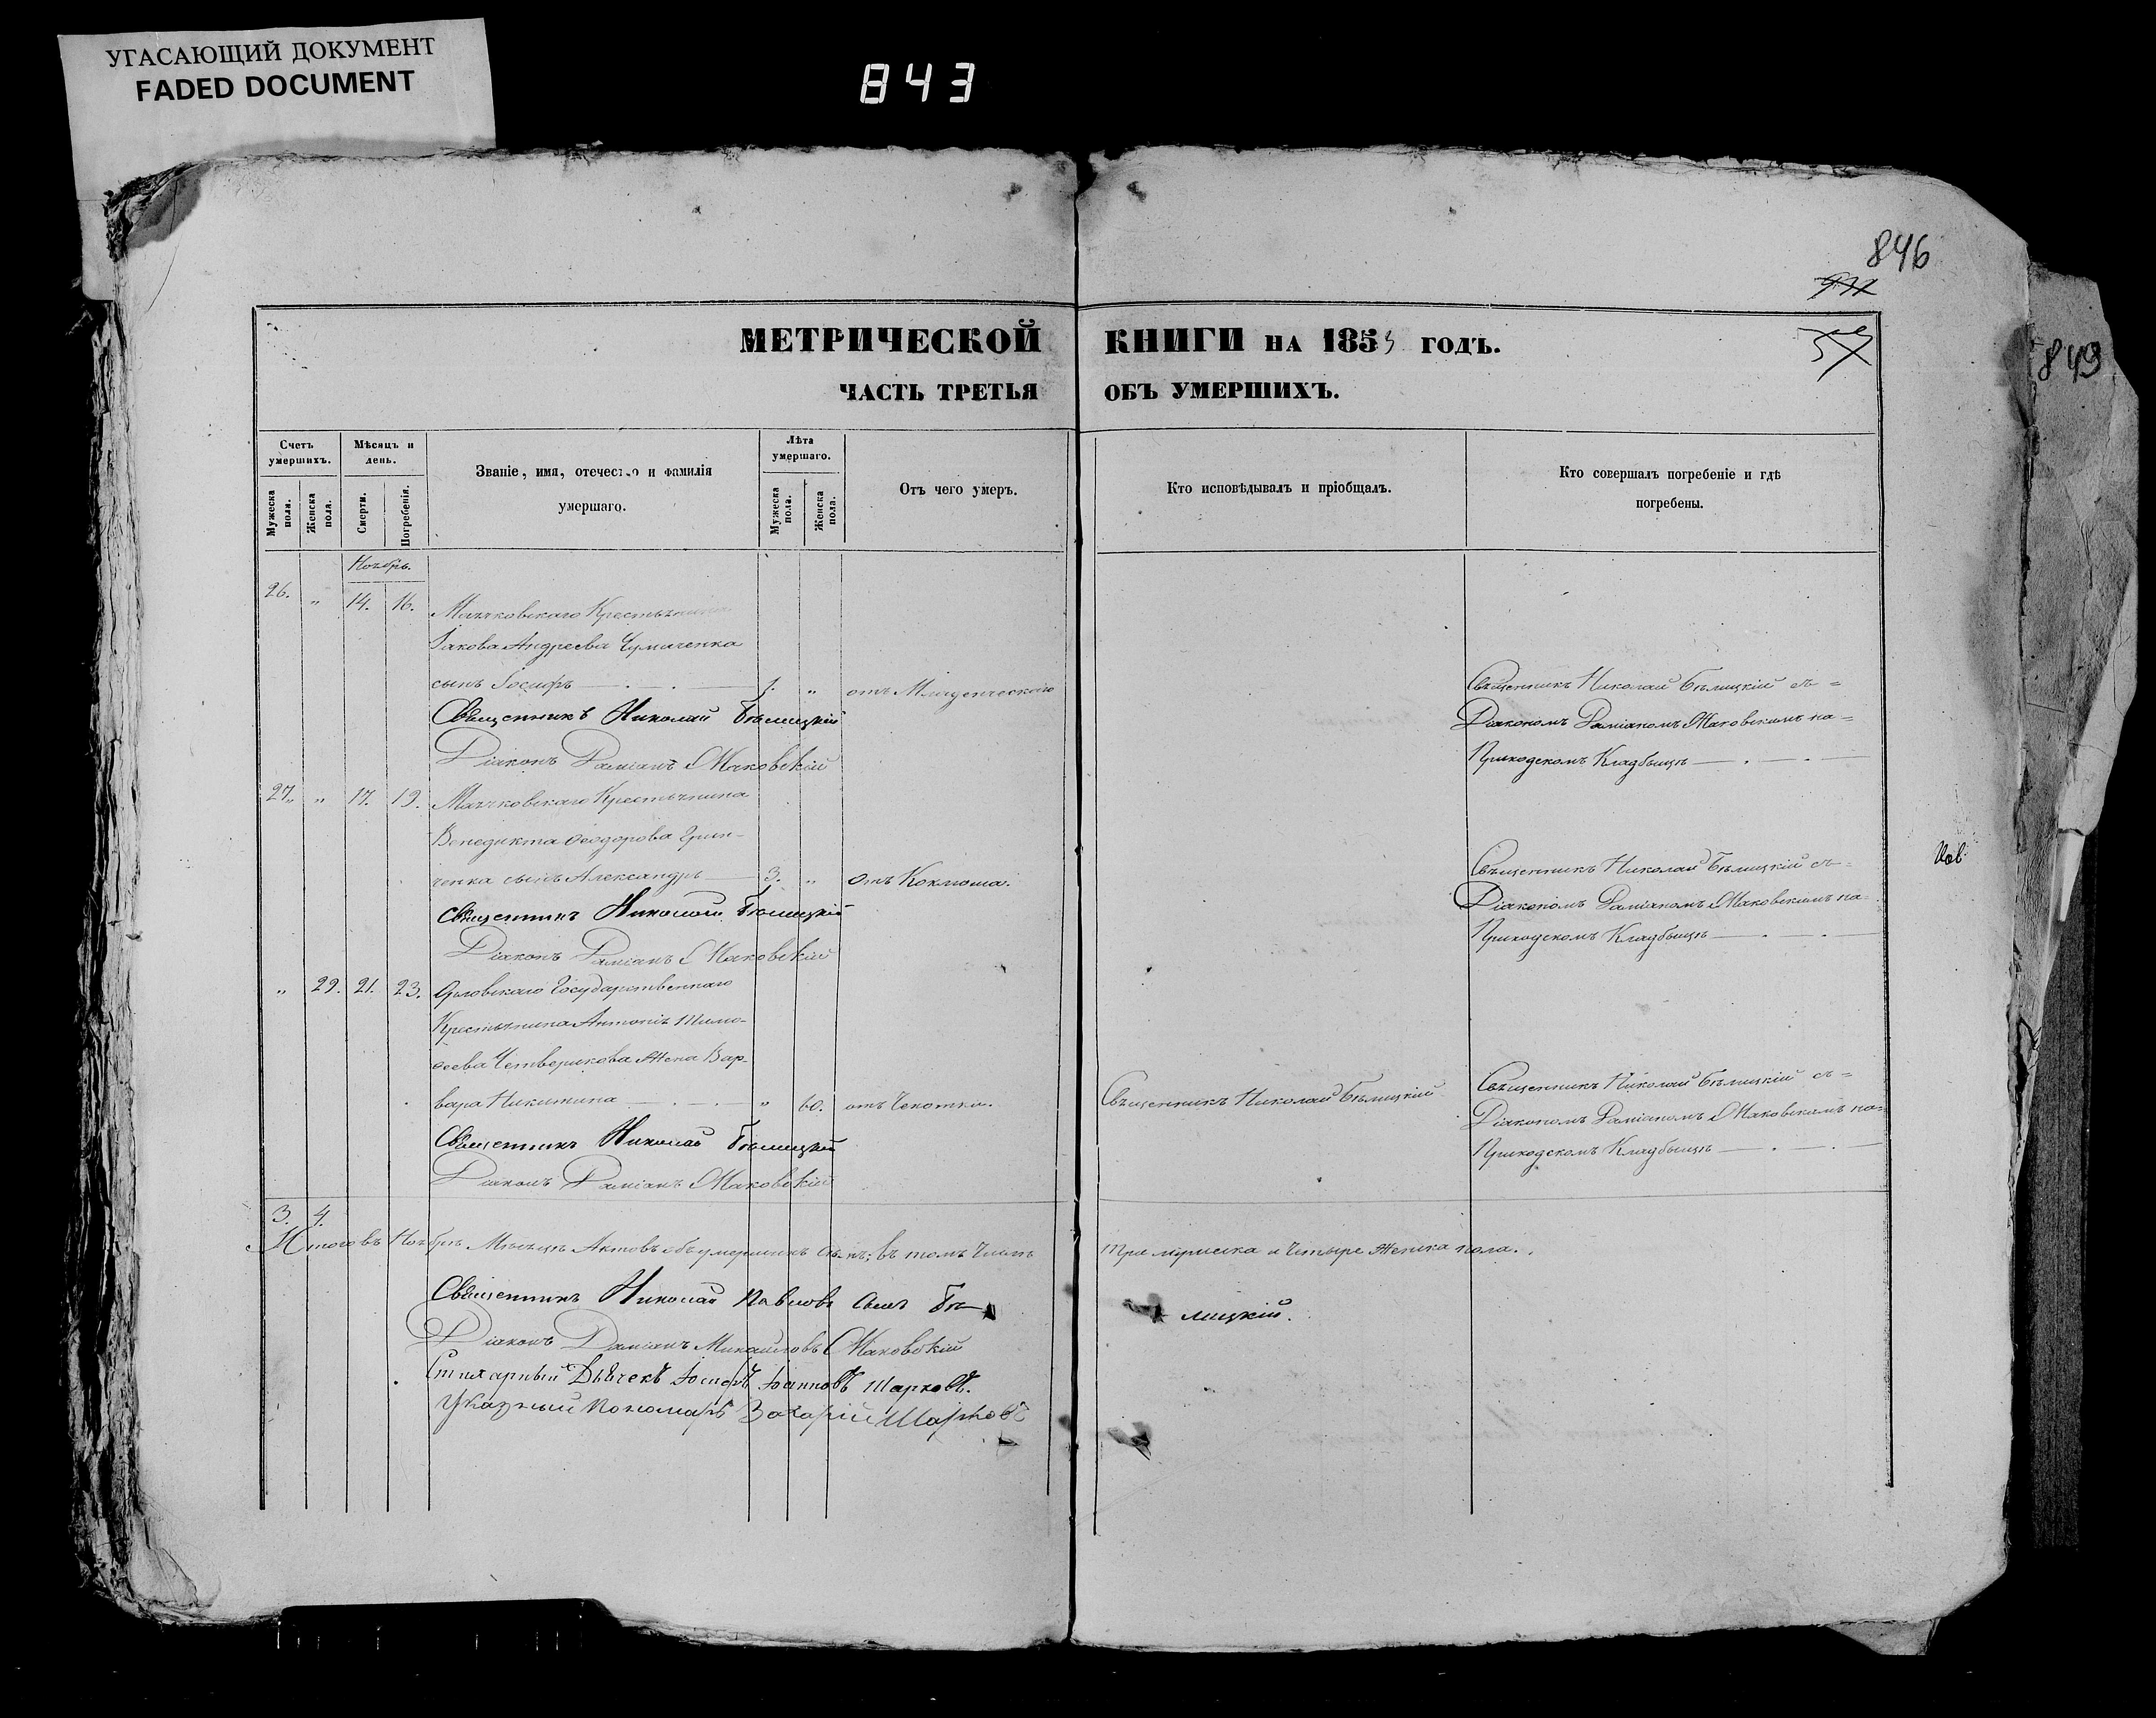 УГАСАЮЩИЙ ДОКУМЕНТ
FADED DOCUMENT
843
846
849
МЕТРИЧЕСКОЙ КНИГИ НА 1853 ГОДЪ.
ЧАСТЬ ТРЕТЬЯ ОБЪ УМЕРШИХЪ.
Счетъ умершихъ.
Мужеска пола.
Женска пола.
Мѣсяцъ и день.
Смерти.
Погребенія.
Званіе, имя, отечество и фамилія
умершаго.
Лѣта умершаго.
Мужеска пола.
Женска пола.
Отъ чего умеръ.
Кто исповѣдывалъ и пріобщалъ.
Кто совершалъ погребеніе и гдѣ
погребены.
Ноябрь.
26. " 14. 16. Маячковскаго Крестьянина
Іакова Андреева Чумаченка
сынъ Іосифъ 1. " отъ Младенческаго
Священникъ Николай Бѣлицкій съ =
Діакономъ Даміаномъ Маковскимъ на =
Приходскомъ Кладбищѣ
Священникъ Николай Бѣлицкій
Діаконъ Даміанъ Маковскій
27. " 17. 19. Маячковскаго Крестьянина
Венедикта Ѳеодорова Грин-
ченка сынъ Александръ 3. " отъ Коклюша.
Священникъ Николай Бѣлицкій съ =
Діакономъ Даміаномъ Маковскимъ на =
Приходскомъ Кладбищѣ
Священникъ Николай Бѣлицкій
Діаконъ Даміанъ Маковскій
" 29. 21. 23. Государственнаго
Крестьянина Антонія Тимо-
ѳеева Четверикова жена Вар-
вара Никитина " 60. отъ Чахотки.
Священникъ Николай Бѣлицкій
Священникъ Николай Бѣлицкій съ =
Діакономъ Даміаномъ Маковскимъ на =
Приходскомъ Кладбищѣ
Священникъ Николай Бѣлицкій
Діаконъ Даміанъ Маковскій
3. 4.
Итого въ Ноябрѣ Мѣсяцѣ Актовъ объ умершихъ семь; въ томъ числѣ три мужеска и четыре женска пола.
Священникъ Николай Павловъ сынъ Бѣ- лицкій.
Діаконъ Даміанъ Михайловъ Маковскій
Стихарный Дьячекъ Іосифъ Іоанновъ Шарковъ.
Указный Пономарь Захарій Шарковъ